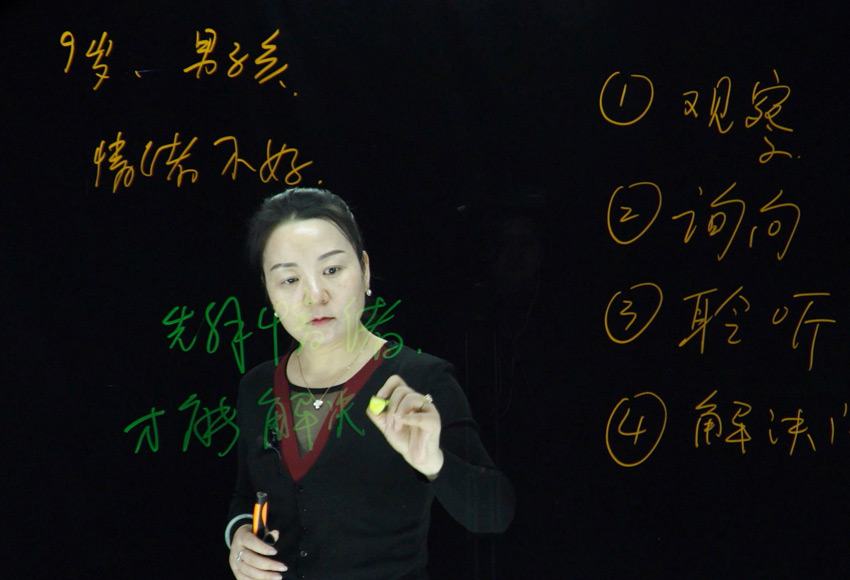 9岁、男孩.
情绪不好.
先解情绪.
才能解决
① 观察.
② 询问
③ 聆听
④ 解决